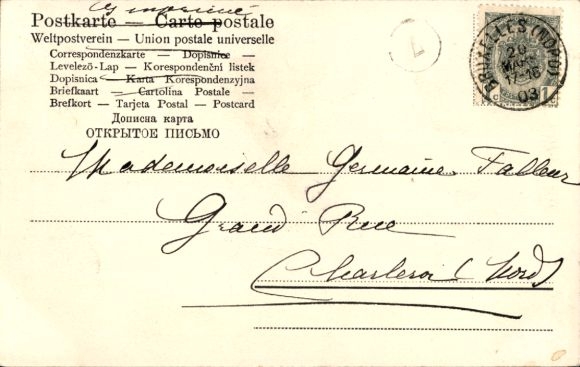 Imprimé
Postkarte — Carte postale
Weltpostverein — Union postale universelle
Correspondenzkarte — Dopisnice
Levelező-Lap — Korespondenční listek
Dopisnica — Karta Korespondenzyjna
Briefkaart — Cartolina Postale —
Brefkort — Tarjeta Postal — Postcard
Дописна карта
ОТКРЫТОЕ ПИСЬМО
BRUXELLES (NORD)
20
MARS
17-18
03
1
Mademoiselle Germaine
Grand Rue
Charleroi (Nord)